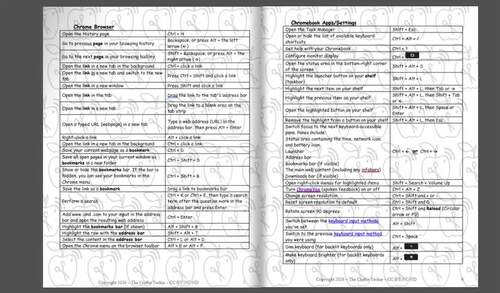 Chrome Browser
Open the History page Ctrl + H
Go to previous page in your browsing history Backspace, or press Alt + the left arrow (←)
Go to the next page in your browsing history Shift + Backspace, or press Alt + the right arrow (→)
Open the link in a new tab in the background Ctrl + click a link
Open the link in a new tab and switch to the new tab Press Ctrl + Shift and click a link
Open the link in a new window Press Shift and click a link
Open the link in the tab Drag the link to the tab's address bar
Open the link in a new tab Drag the link to a blank area on the tab strip
Open a typed URL (webpage) in a new tab Type a web address (URL) in the address bar, then press Alt + Enter
Right-click a link Alt + click a link
Open the link in a new tab in the background Ctrl + click a link
Save your current webpage as a bookmark Ctrl + D
Save all open pages in your current window as bookmarks in a new folder Ctrl + Shift + D
Show or hide the bookmarks bar. If the bar is hidden, you can see your bookmarks in the Chrome menu. Ctrl + Shift + B
Save the link as a bookmark Drag a link to bookmarks bar
Perform a search Ctrl + K or Ctrl + E, then type a search term after the question mark in the address bar and press Enter
Add www. and .com to your input in the address bar and open the resulting web address Ctrl + Enter
Highlight the bookmarks bar (if shown) Alt + Shift + B
Highlight the row with the address bar Shift + Alt + T
Select the content in the address bar Ctrl + L or Alt + D
Open the Chrome menu on the browser toolbar Alt + E or Alt + F
Copyright 2020 - The Crafty Techie - CC BY-NC-ND
Chromebook Apps/Settings
Open the Task Manager Shift + Esc
Open or hide the list of available keyboard shortcuts Ctrl + Alt + /
Get help with your Chromebook Ctrl + ?
Configure monitor display Ctrl +
Open the status area in the bottom-right corner of the screen Shift + Alt + S
Highlight the launcher button on your shelf (taskbar) Shift + Alt + L
Highlight the next item on your shelf Shift + Alt + L, then Tab or →
Highlight the previous item on your shelf Shift + Alt + L, then Shift + Tab or ←
Open the highlighted button on your shelf Shift + Alt + L, then Space or Enter
Remove the highlight from a button on your shelf Shift + Alt + L, then Esc
Switch focus to the next keyboard-accessible pane. Panes include:
Status area containing the time, network icon, and battery icon
Launcher
Address bar
Bookmarks bar (if visible)
The main web content (including any infobars)
Downloads bar (if visible)
Ctrl + ← or Ctrl + →
Open right-click menus for highlighted items Shift + Search + Volume Up
Turn ChromeVox (spoken feedback) on or off Ctrl + Alt + Z
Change screen resolution Ctrl + Shift and + or -
Reset screen resolution to default Ctrl + Shift and 0
Rotate screen 90 degrees Ctrl + Shift and Reload (Circular arrow or F3)
Switch between the keyboard input methods you've set Alt + Shift
Switch to the previous keyboard input method you were using Ctrl + Space
Dim keyboard (for backlit keyboards only) Alt +
Make keyboard brighter (for backlit keyboards only) Alt +
Copyright 2020 - The Crafty Techie - CC BY-NC-ND